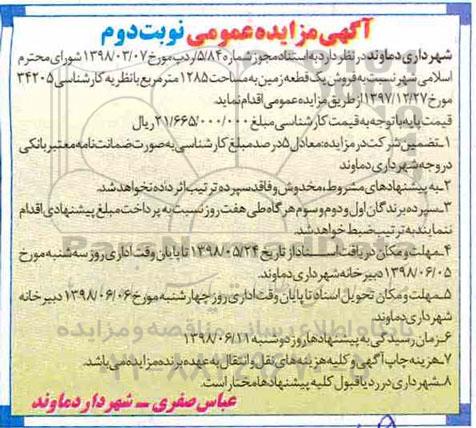 آگهی مزایده عمومی نوبت دوم
شهرداری دماوند در نظر دارد به استناد مجوز شماره ۵/۸۴/ردپ مورخ ۱۳۹۸/۰۳/۰۷ شورای محترم
اسلامی شهر نسبت به فروش یک قطعه زمین به مساحت ۱۲۸۵ متر مربع با نظریه کارشناسی ۳۴۲۰۵
مورخ ۱۳۹۷/۱۲/۲۷ از طریق مزایده عمومی اقدام نماید.
قیمت پایه با توجه به قیمت کارشناسی مبلغ ۲۱/۶۶۵/۰۰۰/۰۰۰ ریال
۱_تضمین شرکت در مزایده: معادل ۵ درصد مبلغ کارشناسی به صورت ضمانت نامه معتبر بانکی
در وجه شهرداری دماوند
۲_به پیشنهادهای مشروط، مخدوش و فاقد سپرده ترتیب اثر داده نخواهد شد.
۳_سپرده برندگان اول و دوم و سوم هرگاه طی هفت روز نسبت به پرداخت مبلغ پیشنهادی اقدام
ننمایند به ترتیب ضبط خواهد شد.
۴_مهلت و مکان دریافت اسناد از تاریخ ۱۳۹۸/۰۵/۲۴ تا پایان وقت اداری روز سه شنبه مورخ
۱۳۹۸/۰۶/۰۵ دبیرخانه شهرداری دماوند.
۵_مهلت و مکان تحویل اسناد تا پایان وقت اداری روز چهارشنبه مورخ ۱۳۹۸/۰۶/۰۶ دبیرخانه
شهرداری دماوند.
۶_زمان رسیدگی به پیشنهادها روز دوشنبه ۱۳۹۸/۰۶/۱۱
۷_هزینه چاپ آگهی و کلیه هزینه های نقل و انتقال به عهده برنده مزایده می باشد.
۸_شهرداری در رد یا قبول کلیه پیشنهادها مختار است.
عباس صفری _ شهردار دماوند